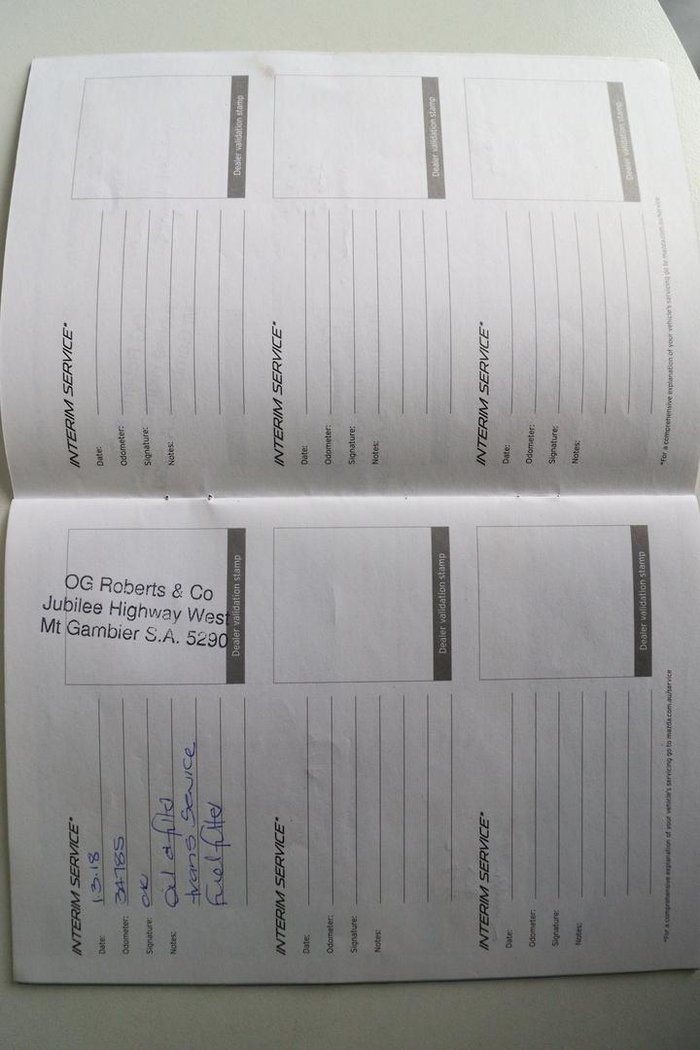 INTERIM SERVICE*
Date: 1.3.18
Odometer: 34785
Signature: OK
Notes: Oil & filter
trans service
fuel filter
OG Roberts & Co
Jubilee Highway West
Mt Gambier S.A. 5290
Dealer validation stamp
INTERIM SERVICE*
Date:
Odometer:
Signature:
Notes:
Dealer validation stamp
INTERIM SERVICE*
Date:
Odometer:
Signature:
Notes:
Dealer validation stamp
*For a comprehensive explanation of your vehicle's servicing go to mazda.com.au/service
INTERIM SERVICE*
Date:
Odometer:
Signature:
Notes:
Dealer validation stamp
INTERIM SERVICE*
Date:
Odometer:
Signature:
Notes:
Dealer validation stamp
INTERIM SERVICE*
Date:
Odometer:
Signature:
Notes:
Dealer validation stamp
*For a comprehensive explanation of your vehicle's servicing go to mazda.com.au/service